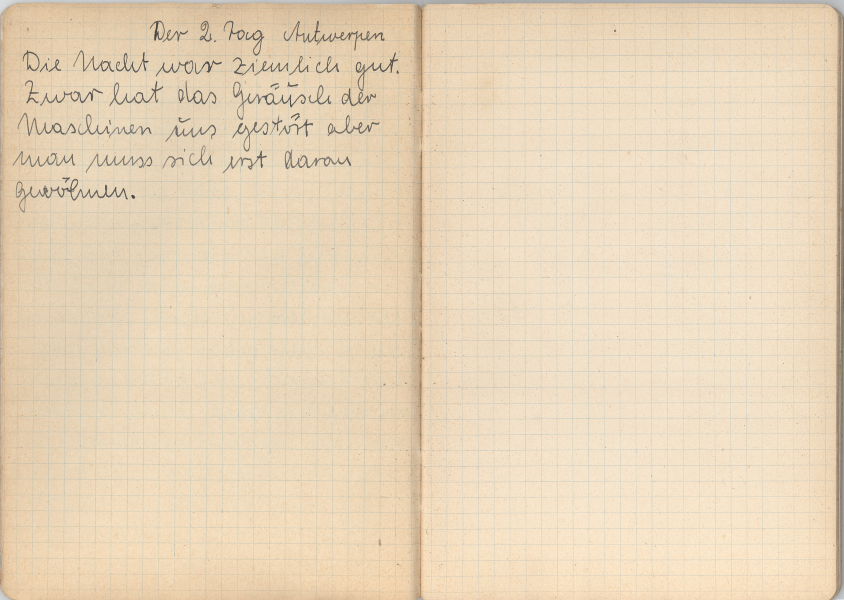 Der 2. Tag Antwerpen
Die Nacht war ziemlich gut.
Zwar hat das Geräusch der
Maschinen uns gestört aber
man muss sich erst daran
gewöhnen.